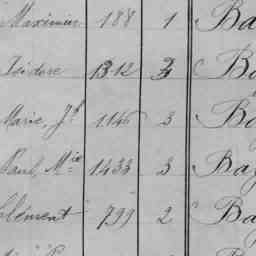 Maximin 188 1 Ba
Isidore 1312 Ba
Marie, Jh 1146 3 Ba
Paul, Mie 1433 3 Bay
Clément 799 2 Ba